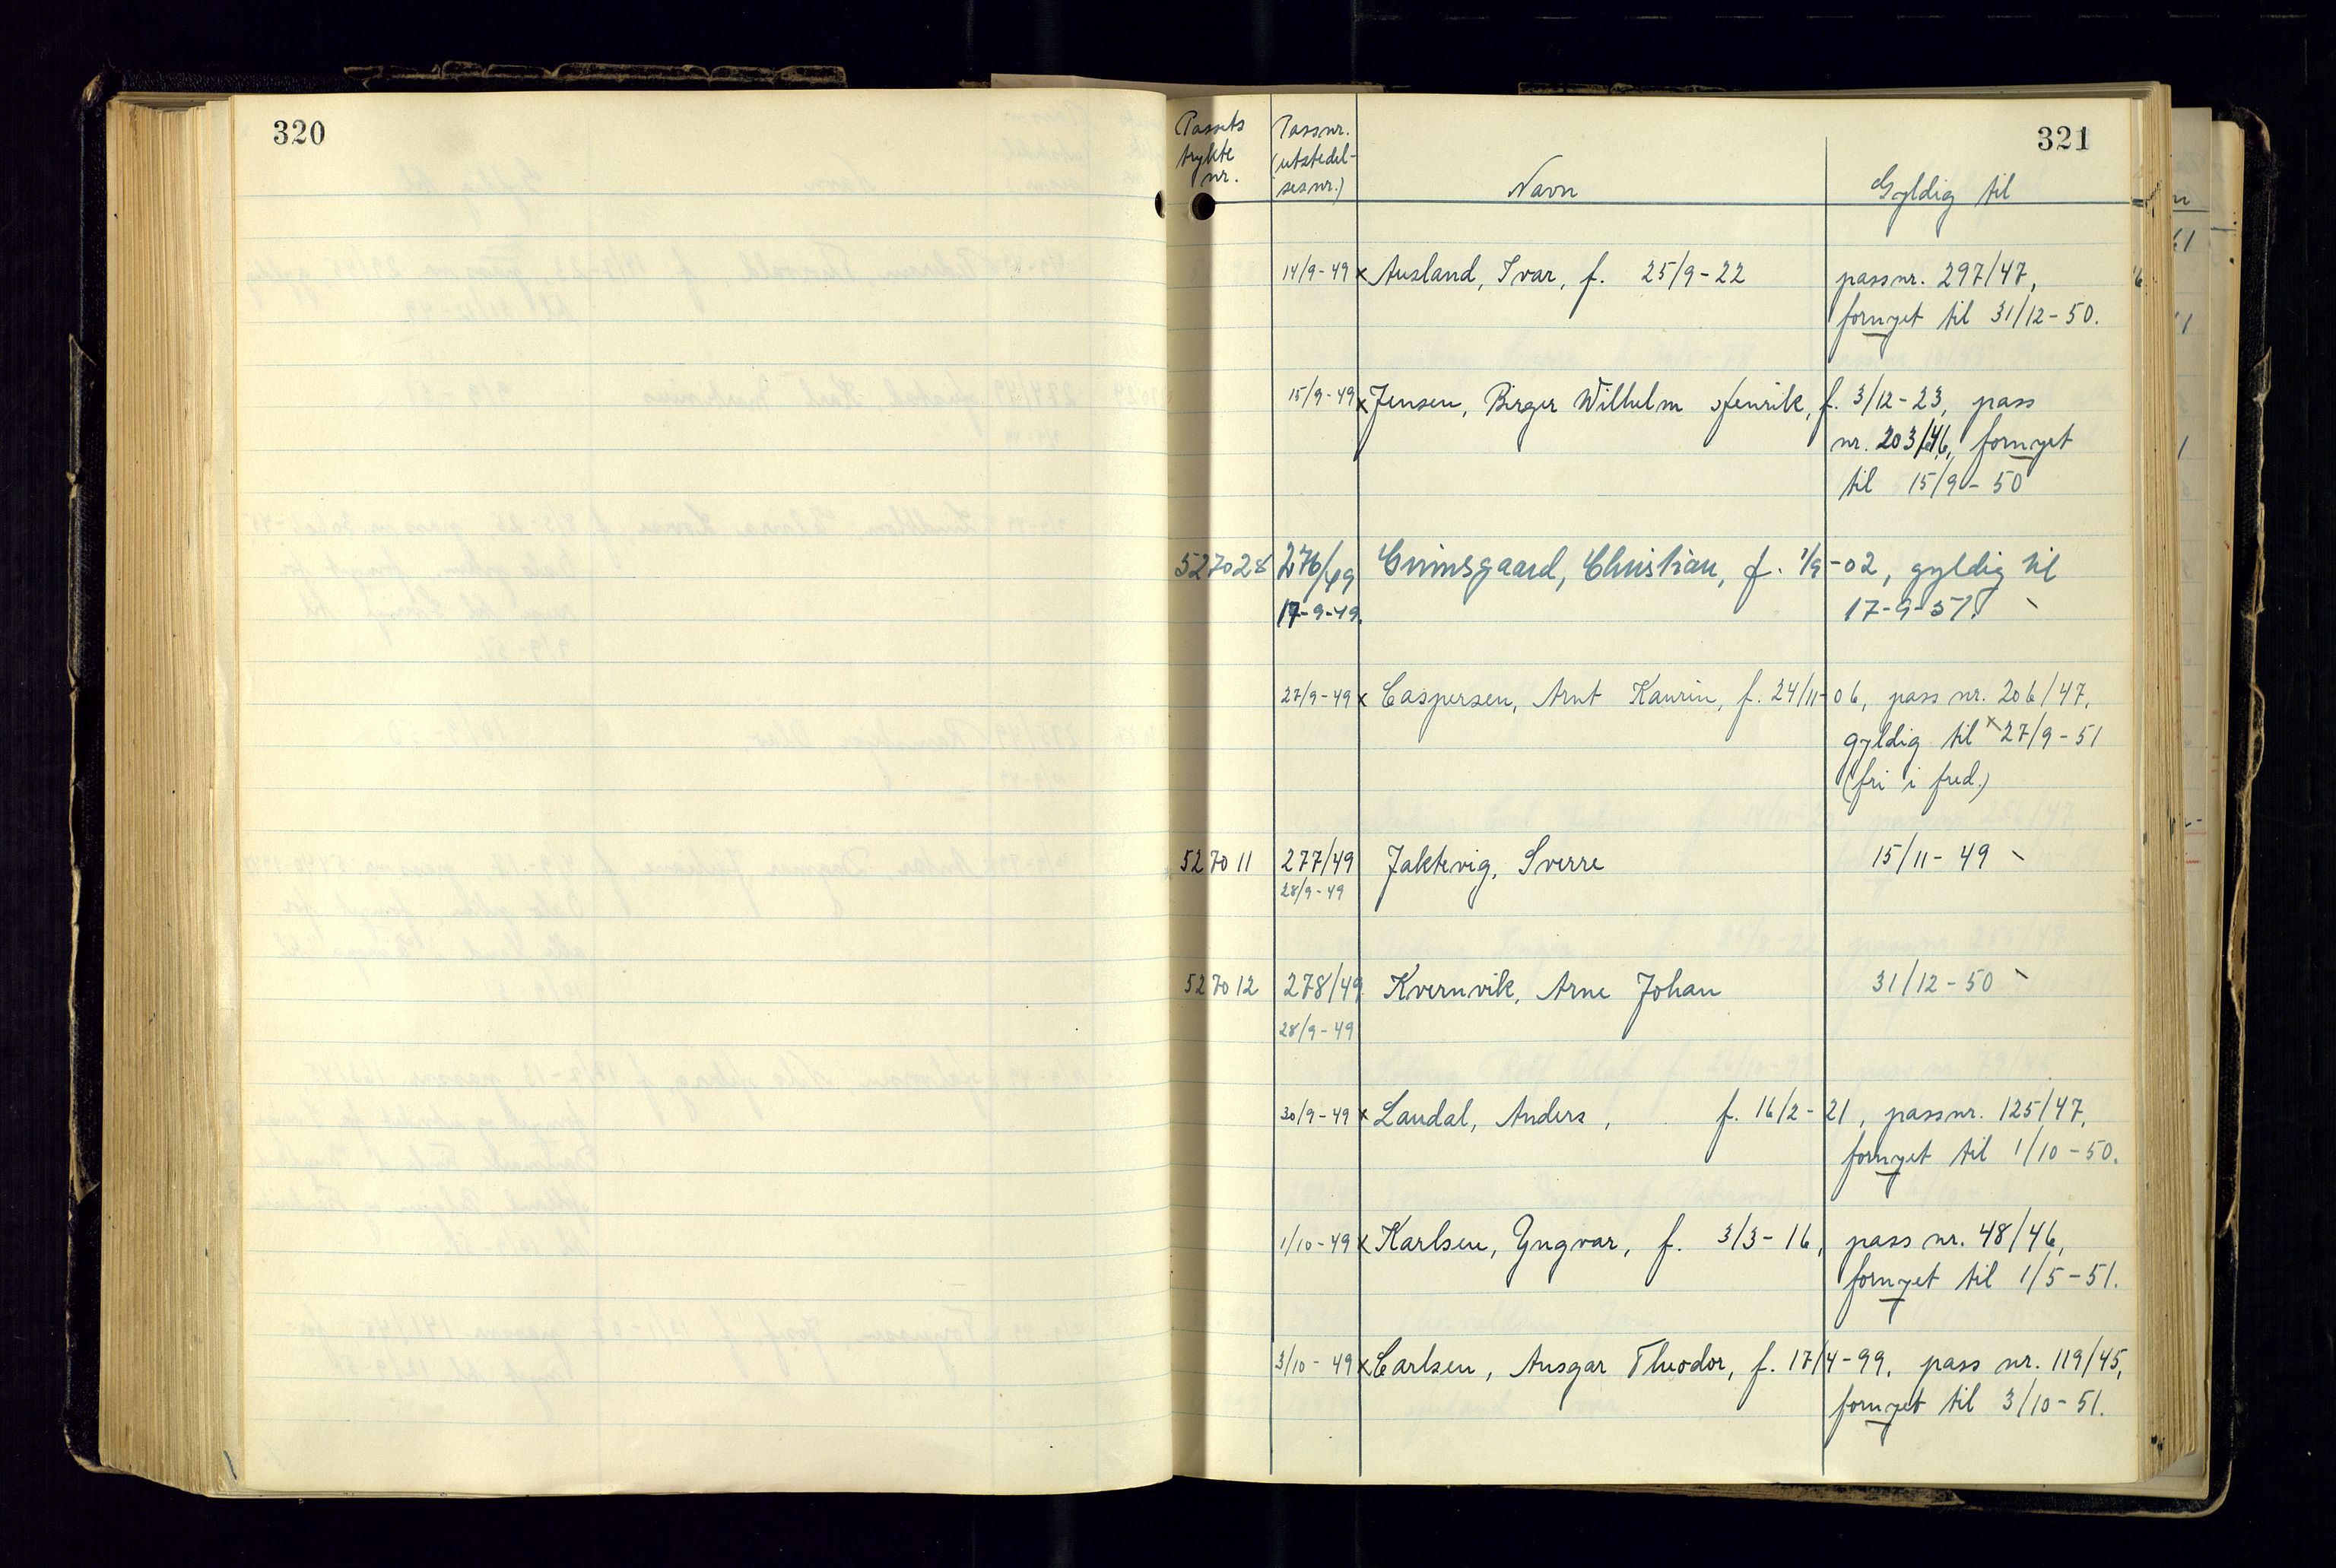 320
321
Passets trykte nr.
Passnr. (utstedelsesnr.)
Navn
Gyldig til
14/9-49 x Ausland, Ivar, f. 25/9-22 passnr. 297/47,
fornyet til 31/12-50.
15/9-49 x Jensen, Birger Wilhelm Henrik, f. 3/12-23, pass
nr. 203/46, fornyet
til 15/9-50
527028 276/49 Grimsgaard, Christian, f. 1/9-02, gyldig til
17-9-49. 17-9-51.
27/9-49 x Caspersen, Arnt Kaurin, f. 24/11-06, pass nr. 206/47,
gyldig til x 27/9-51
(fri i fred.)
527011 277/49 Jaktevig, Sverre 15/11-49
28/9-49
527012 278/49 Kvernvik, Arne Johan 31/12-50
28/9-49
30/9-49 x Laudal, Anders, f. 16/2-21, passnr. 125/47,
fornyet til 1/10-50.
1/10-49 x Karlsen, Yngvar, f. 3/3-16, pass nr. 48/46,
fornyet til 1/5-51.
3/10-49 x Carlsen, Ansgar Theodor, f. 17/4-99, pass nr. 119/45,
fornyet til 3/10-51.